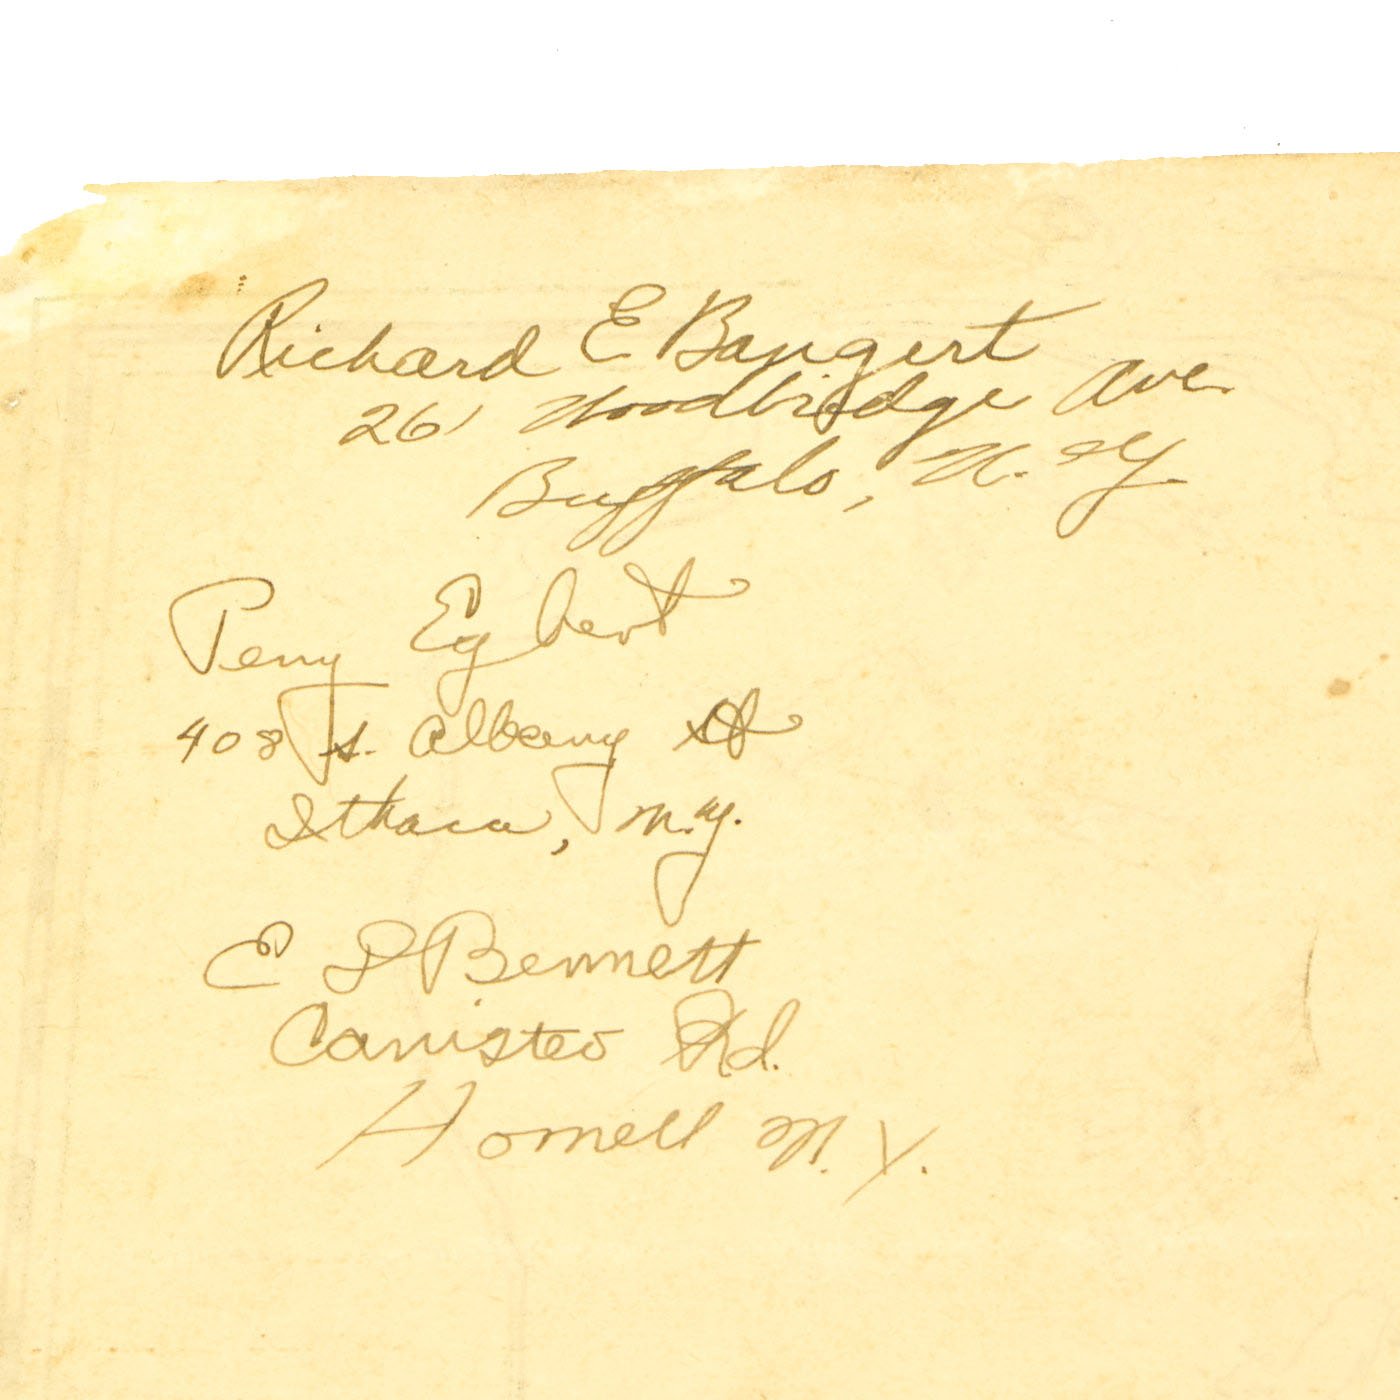 Richard E Bangert
26 Woodbridge Ave
Buffalo, N. Y.
Perry Egbert
408 S. Albany St
Ithaca, N.Y.
E D Bennett
Canisteo Rd.
Hornell N. Y.